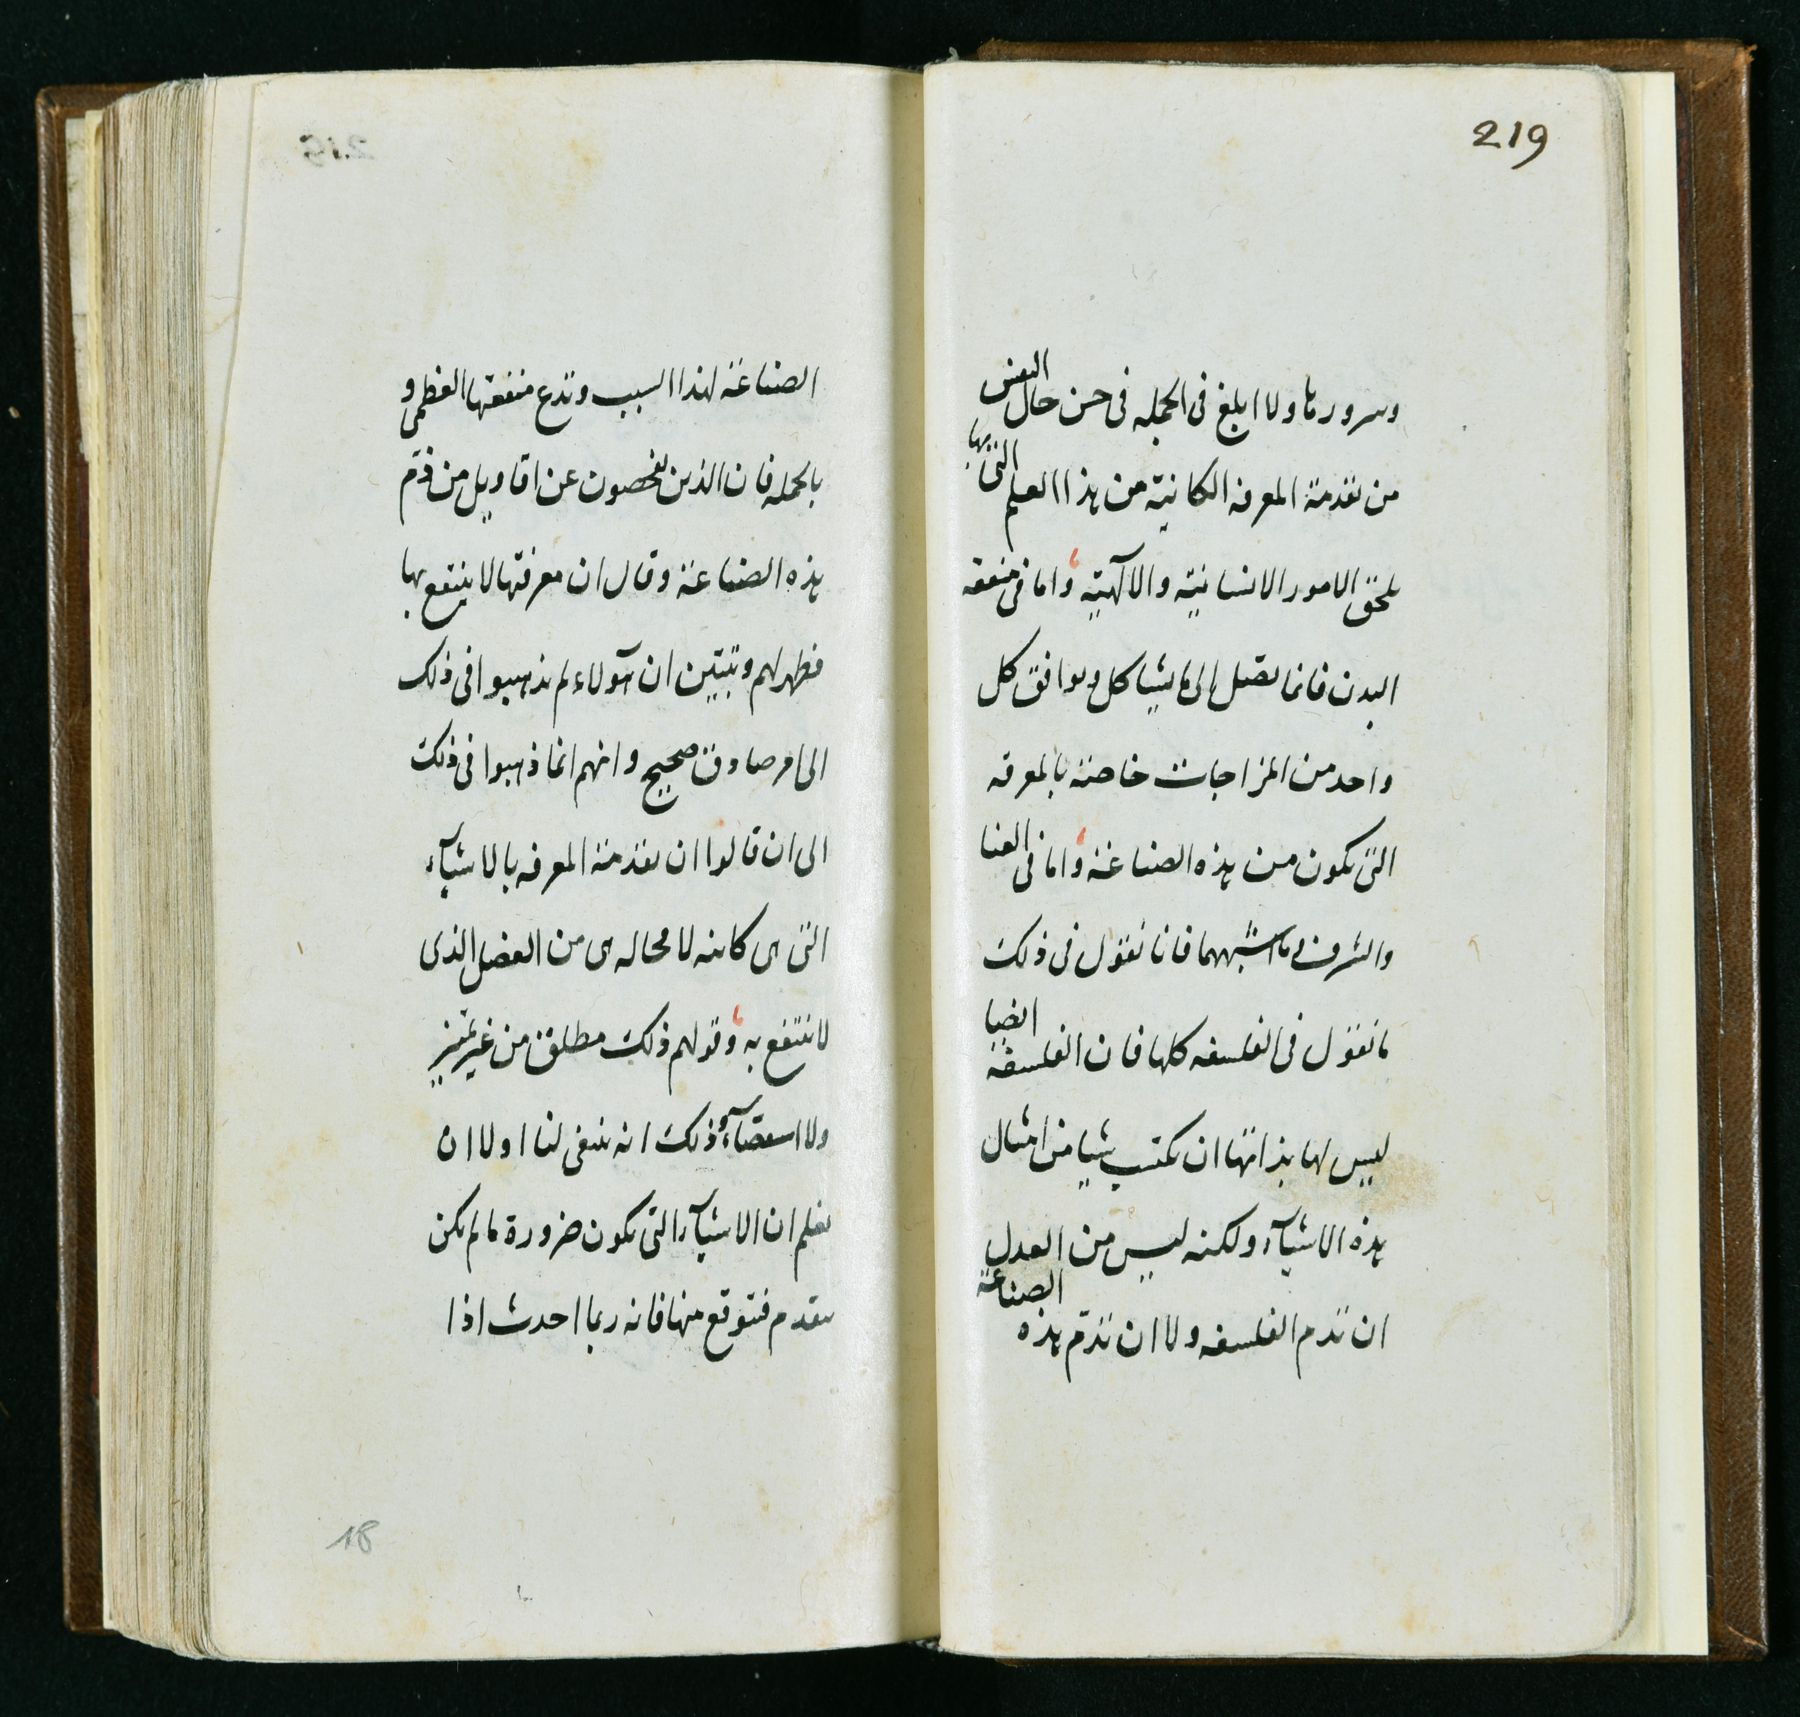 219
وسرورها ولا ابلغ فى الجمله فى حسن حال النفس
من تقدمة المعرفه الكاينة من هذا العلم التى بها
يلحق الامور الانسانية والالهية واما فى منفعه
البدن فانما تصل الى ما يشاكل ويوافق كل
واحد من المزاجات خاصة بالمعرفه
التى تكون من هذه الصناعة واما فى الغنا
والشرف وما اشبههما فانا نقول فى ذلك
ما نقول فى الفلسفه كلها فان الفلسفة ايضا
ليس لها بذاتها ان تكتسب شيا من امثال
هذه الاشيآء ولكنه ليس من العدل
ان نذم الفلسفه ولا ان نذم هذه الصناعة
الصناعة لهذا السبب وندع منفعتها العظمى و
بالجمله فان الذين يفحصون عن اقاويل من ذم
هذه الصناعة وقال ان معرفتها لا ينتفع بها
فظهر لهم وتبين ان هولاء لم يذهبوا فى ذلك
الى امر صادق صحيح وانهم انما ذهبوا فى ذلك
الى ان قالوا ان تقدمة المعرفه بالاشيآء
التى هى كاينه لا محاله هى من الفضل الذى
لا ننتفع به وقولهم ذلك مطلق من غير تميز
ولا استقصآء وذلك انه ينبغى لنا اولا ان
نعلم ان الاشيآء التى تكون ضرورة ما لم يكن
يتقدم فيتوقع منها فانه ربما احدث اذا
18